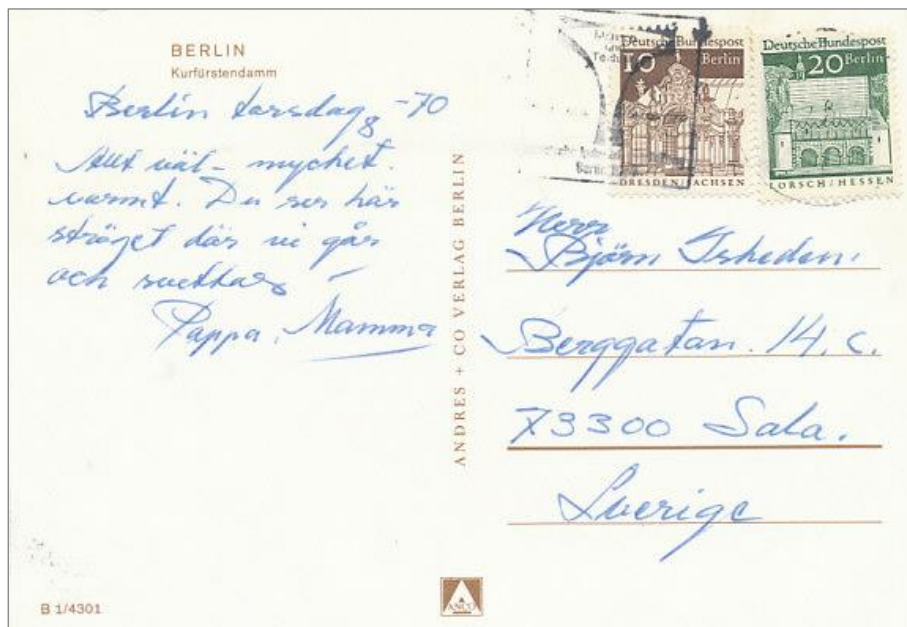 BERLIN
Kurfürstendamm
Berlin torsdag 8 -70
Allt väl - mycket
varmt. Du ser här
ströget där vi går
och svettas -
Pappa, Mamma
ANDRES + CO VERLAG BERLIN
Deutsche Bundespost
10 Berlin
DRESDEN/SACHSEN
Deutsche Bundespost
20 Berlin
LORSCH/HESSEN
Herr
Björn Isheden.
Berggatan. 14. C.
73300 Sala.
Sverige
B 1/4301
ANCO